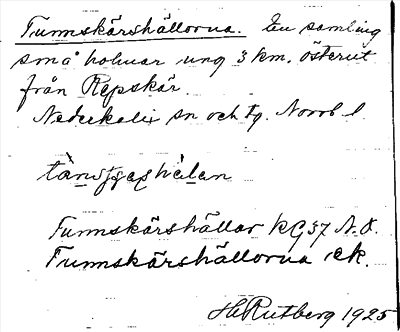 Tunnskärshällorna. En samling
små holmar ung 3 km. österut
från Repskär.
Nederkalix sn och tg. Norrb l.
Tunnskärshällar kG37 N.O.
Tunnskärshällorna, ek.
H. Rutberg 1925